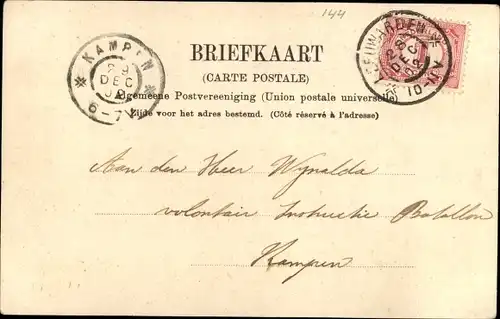 144
BRIEFKAART
(CARTE POSTALE)
Algemeene Postvereeniging (Union postale universelle)
Zijde voor het adres bestemd. (Côté réservé à l'adresse)
KAMPEN
29
DEC
6-7
LEEUWARDEN
28
DEC
10-11V
Aan den Heer Wynalda
volontair Instructie Bataillon
Kampen